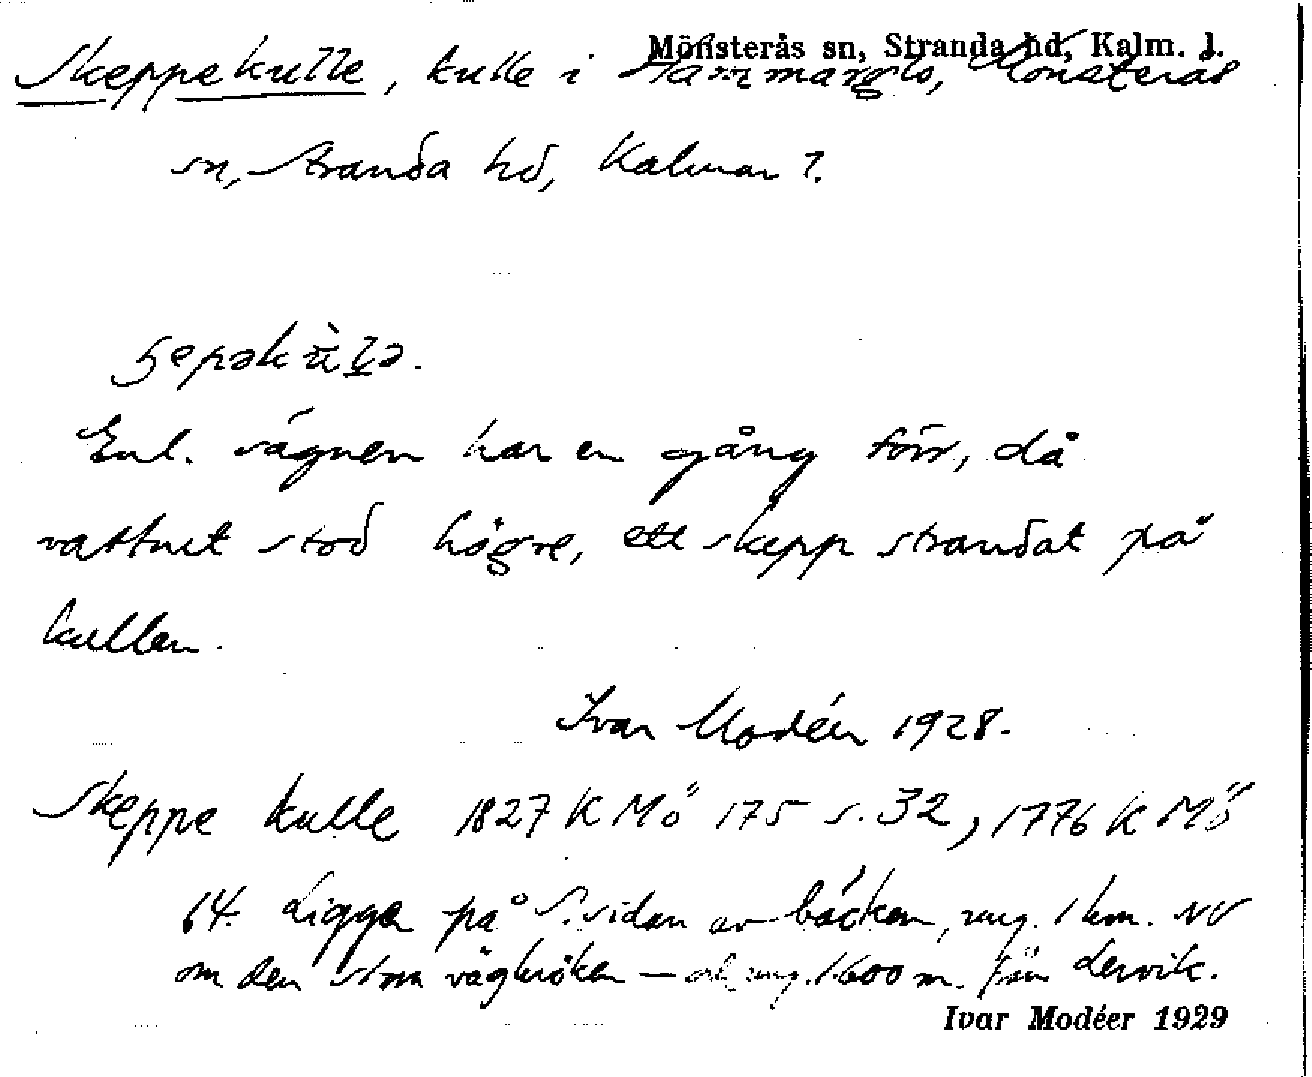 Mönsterås sn, Stranda hd, Kalm. l.
Skeppekulle, kulle i Mönsterås
sn, Stranda hd, Kalmar l.
Enl. sägnen har en gång förr, då
vattnet stod högre, ett skepp strandat på
kullen.
Ivar Modéer 1928.
Skeppe kulle 1827 K Mö 175 s. 32, 1776 K Mö
64. Ligger på S. sidan av bäcken, ung. 1 km. NV
om den stora vägkröken – och ung. 1600 m. från Lervik.
Ivar Modéer 1929